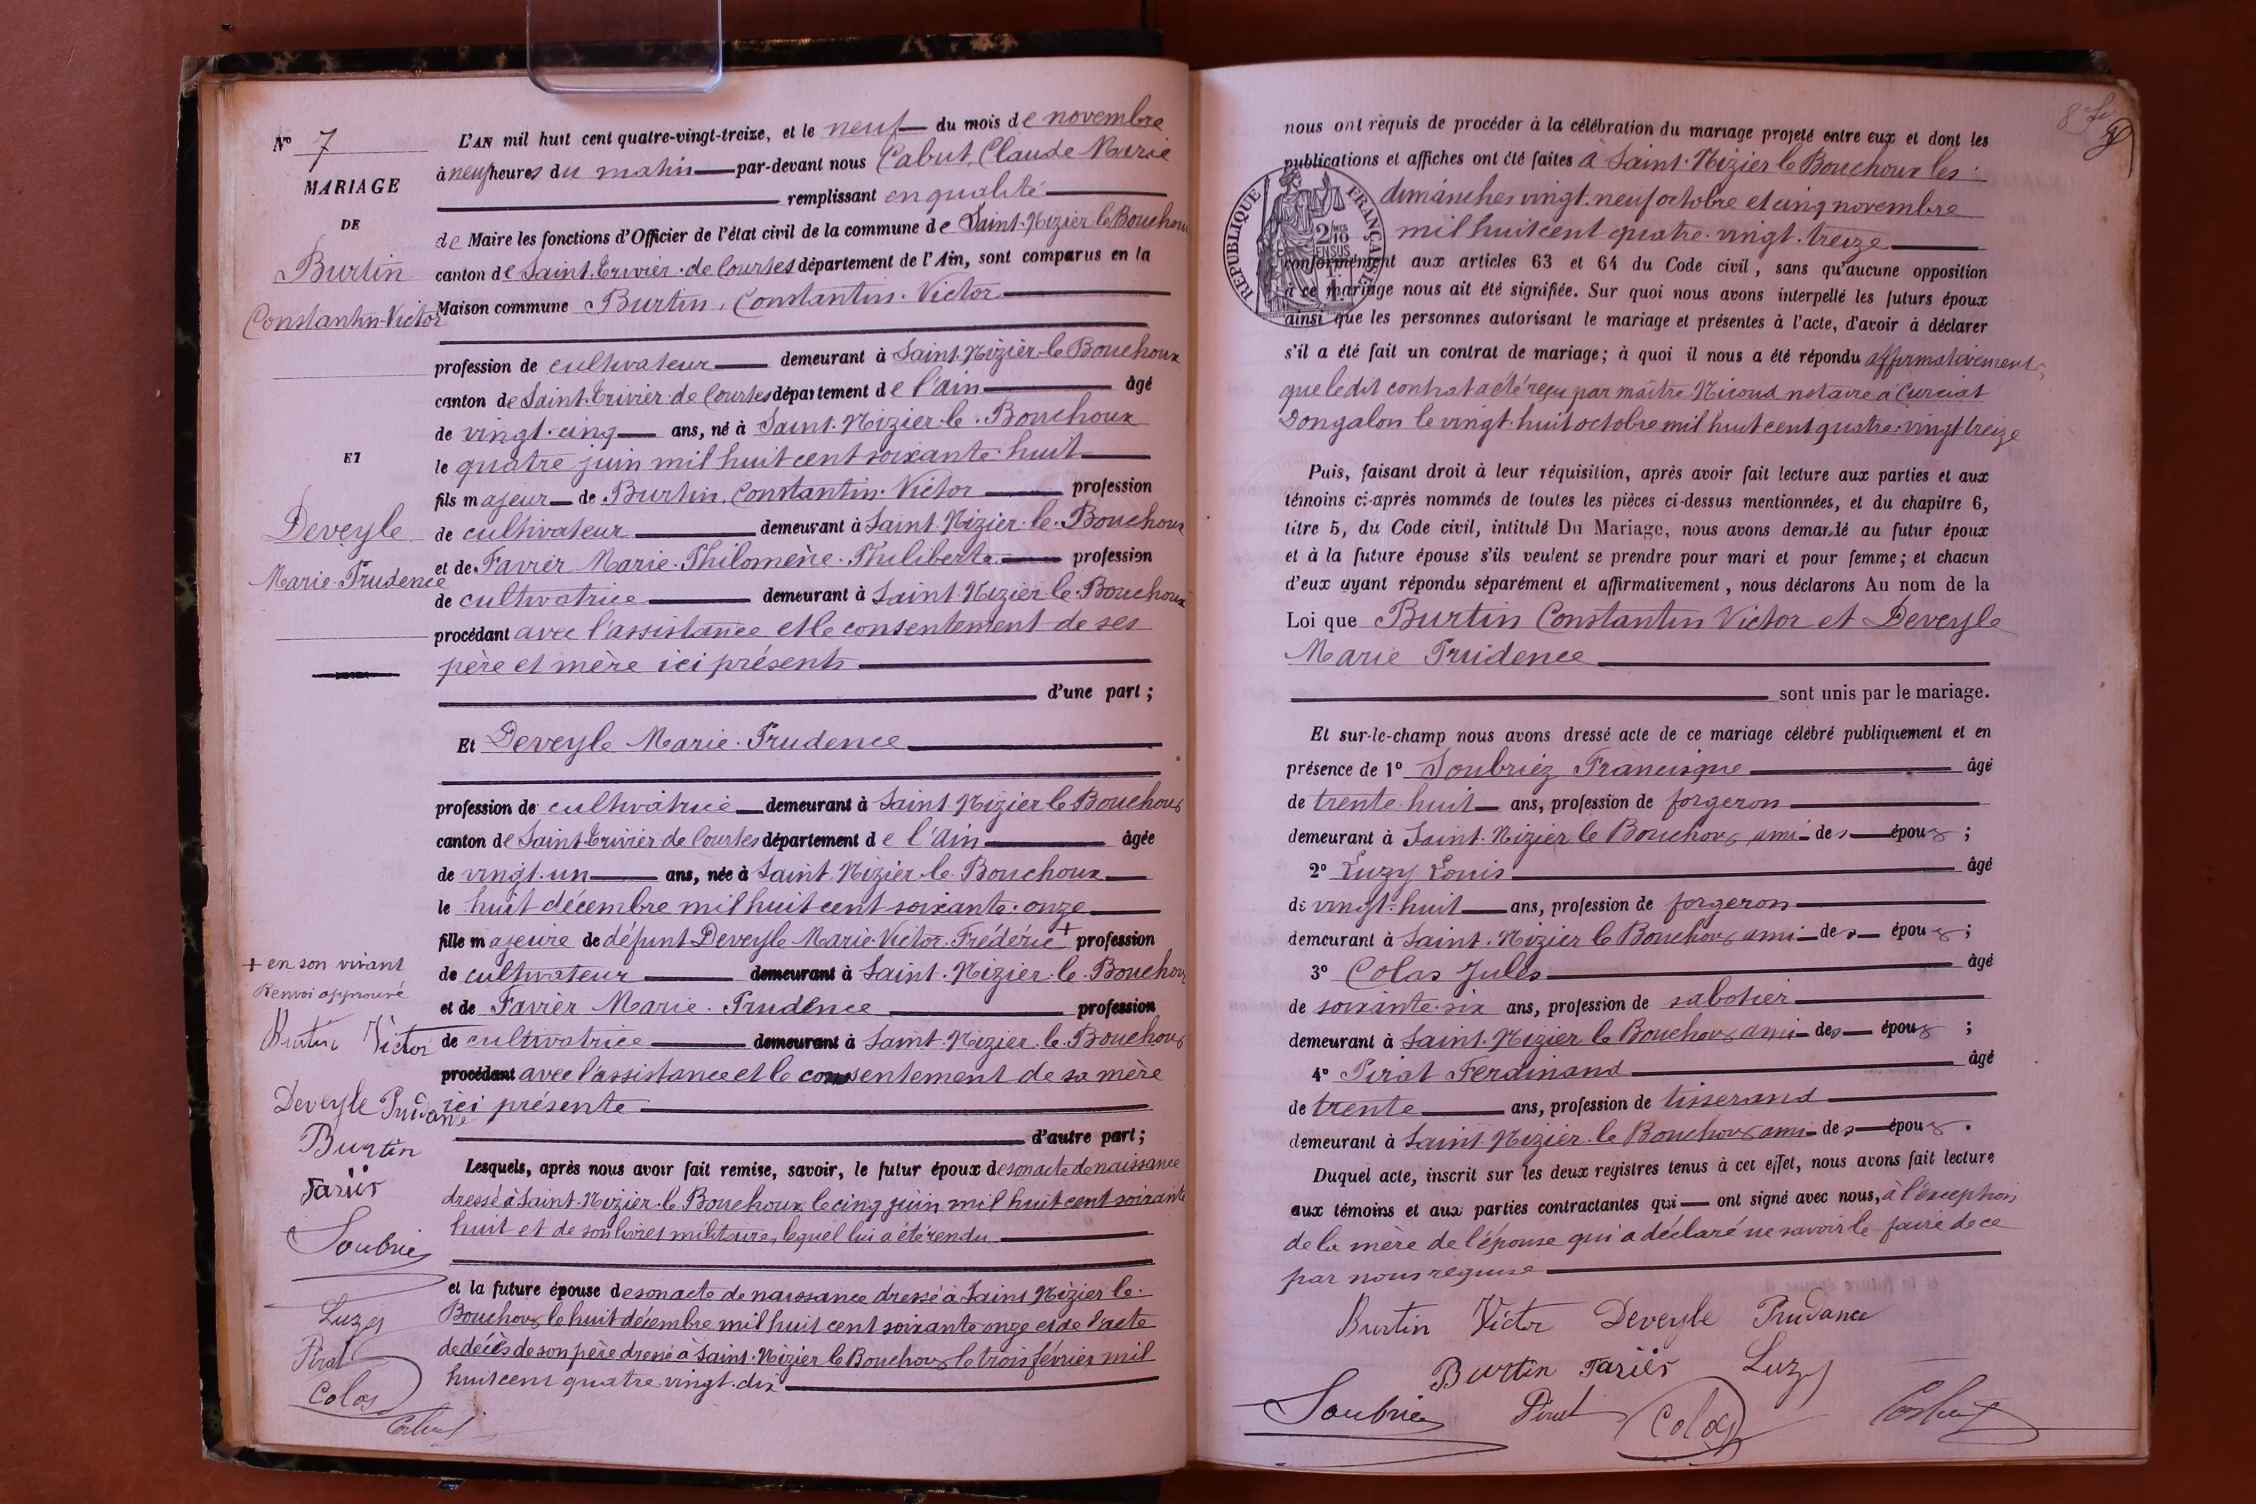 N° 7
MARIAGE
DE
Burtin
Constantin-Victor
ET
Deveyle
Marie-Prudence
+ en son vivant
Renvoi approuvé
Burtin Victor
Deveyle Prudance
Burtin
Favier
Soubriez
Luzy
Pirat
Colas
L'AN mil huit cent quatre-vingt-treize, et le neuf du mois de novembre
à neuf heures du matin par-devant nous Cabut, Claude Marie
remplissant en qualité
de Maire les fonctions d'Officier de l'état civil de la commune de Saint-Nizier le Bouchoux
canton de Saint-Trivier-de Courtes département de l'Ain, sont comparus en la
Maison commune Burtin, Constantin-Victor
profession de cultivateur demeurant à Saint-Nizier-le Bouchoux
canton de Saint-Trivier-de Courtes département de l'ain âgé
de vingt-cinq ans, né à Saint-Nizier-le-Bouchoux
le quatre juin mil huit cent soixante-huit
fils majeur de Burtin, Constantin-Victor profession
de cultivateur demeurant à Saint-Nizier-le-Bouchoux
et de Favier Marie-Philomène-Philiberte profession
de cultivatrice demeurant à Saint-Nizier-le-Bouchoux
procédant avec l'assistance et le consentement de ses
père et mère ici présents
d'une part;
Et Deveyle Marie-Prudence
profession de cultivatrice demeurant à Saint-Nizier le Bouchoux
canton de Saint-Trivier de Courtes département de l'ain âgée
de vingt-un ans, née à Saint Nizier-le-Bouchoux
le huit décembre mil huit cent soixante-onze
fille majeure de défunt Deveyle Marie-Victor-Frédéric + profession
de cultivateur demeurant à Saint-Nizier-le-Bouchoux
et de Favier Marie-Prudence profession
de cultivatrice demeurant à Saint-Nizier-le-Bouchoux
procédant avec l'assistance et le consentement de sa mère
ici présente
d'autre part;
Lesquels, après nous avoir fait remise, savoir, le futur époux de son acte de naissance
dressé à Saint-Nizier-le Bouchoux le cinq juin mil huit cent soixante
huit et de son livret militaire, lequel lui a été rendu
et la future épouse de son acte de naissance dressé à Saint Nizier le
Bouchoux le huit décembre mil huit cent soixante onze et de l'acte
de décès de son père dressé à Saint-Nizier le Bouchoux le trois février mil
huit cent quatre-vingt-dix
nous ont requis de procéder à la célébration du mariage projeté entre eux et dont les
publications et affiches ont été faites à Saint-Nizier le Bouchoux les
dimanches vingt-neuf octobre et cinq novembre
mil huit cent quatre-vingt-treize
RÉPUBLIQUE FRANÇAISE
conformément aux articles 63 et 64 du Code civil, sans qu'aucune opposition
à ce mariage nous ait été signifiée. Sur quoi nous avons interpellé les futurs époux
ainsi que les personnes autorisant le mariage et présentes à l'acte, d'avoir à déclarer
s'il a été fait un contrat de mariage; à quoi il nous a été répondu affirmativement,
que le dit contrat a été reçu par maître Nicoud notaire à Curciat
Dongalon le vingt-huit octobre mil huit cent quatre-vingt treize
Puis, faisant droit à leur réquisition, après avoir fait lecture aux parties et aux
témoins ci-après nommés de toutes les pièces ci-dessus mentionnées, et du chapitre 6,
titre 5, du Code civil, intitulé Du Mariage, nous avons demandé au futur époux
et à la future épouse s'ils veulent se prendre pour mari et pour femme; et chacun
d'eux ayant répondu séparément et affirmativement, nous déclarons Au nom de la
Loi que Burtin Constantin Victor et Deveyle
Marie Prudence
sont unis par le mariage.
Et sur-le-champ nous avons dressé acte de ce mariage célébré publiquement et en
présence de 1° Soubriez Francisque âgé
de trente-huit ans, profession de forgeron
demeurant à Saint-Nizier le Bouchoux ami des époux;
2° Luzy Louis âgé
de vingt-huit ans, profession de forgeron
demeurant à Saint-Nizier le Bouchoux ami des époux;
3° Colas Jules âgé
de soixante-six ans, profession de sabotier
demeurant à Saint-Nizier le Bouchoux ami des époux;
4° Pirat Ferdinand âgé
de trente ans, profession de tisserand
demeurant à Saint-Nizier-le Bouchoux ami des époux.
Duquel acte, inscrit sur les deux registres tenus à cet effet, nous avons fait lecture
aux témoins et aux parties contractantes qui ont signé avec nous, à l'exception
de la mère de l'épouse qui a déclaré ne savoir le faire de ce
par nous requise
Burtin Victor Deveyle Prudance
Burtin Favier Luzy
Soubriez Pirat Colas